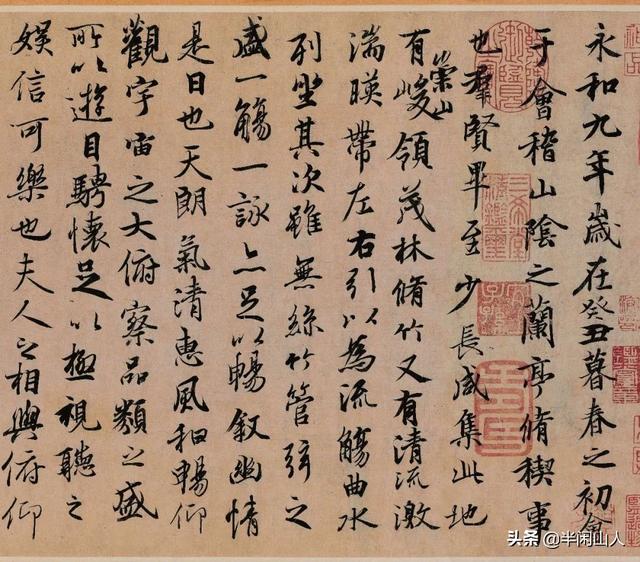 永和九年歲在癸丑暮春之初會
于會稽山陰之蘭亭脩稧事
也羣賢畢至少長咸集此地
有崇山峻領茂林脩竹又有清流激
湍暎帶左右引以為流觴曲水
列坐其次雖無絲竹管弦之
盛一觴一詠亦足以暢敘幽情
是日也天朗氣清惠風和暢仰
觀宇宙之大俯察品類之盛
所以遊目騁懷足以極視聽之
娛信可樂也夫人之相與俯仰
头条 @半闲山人